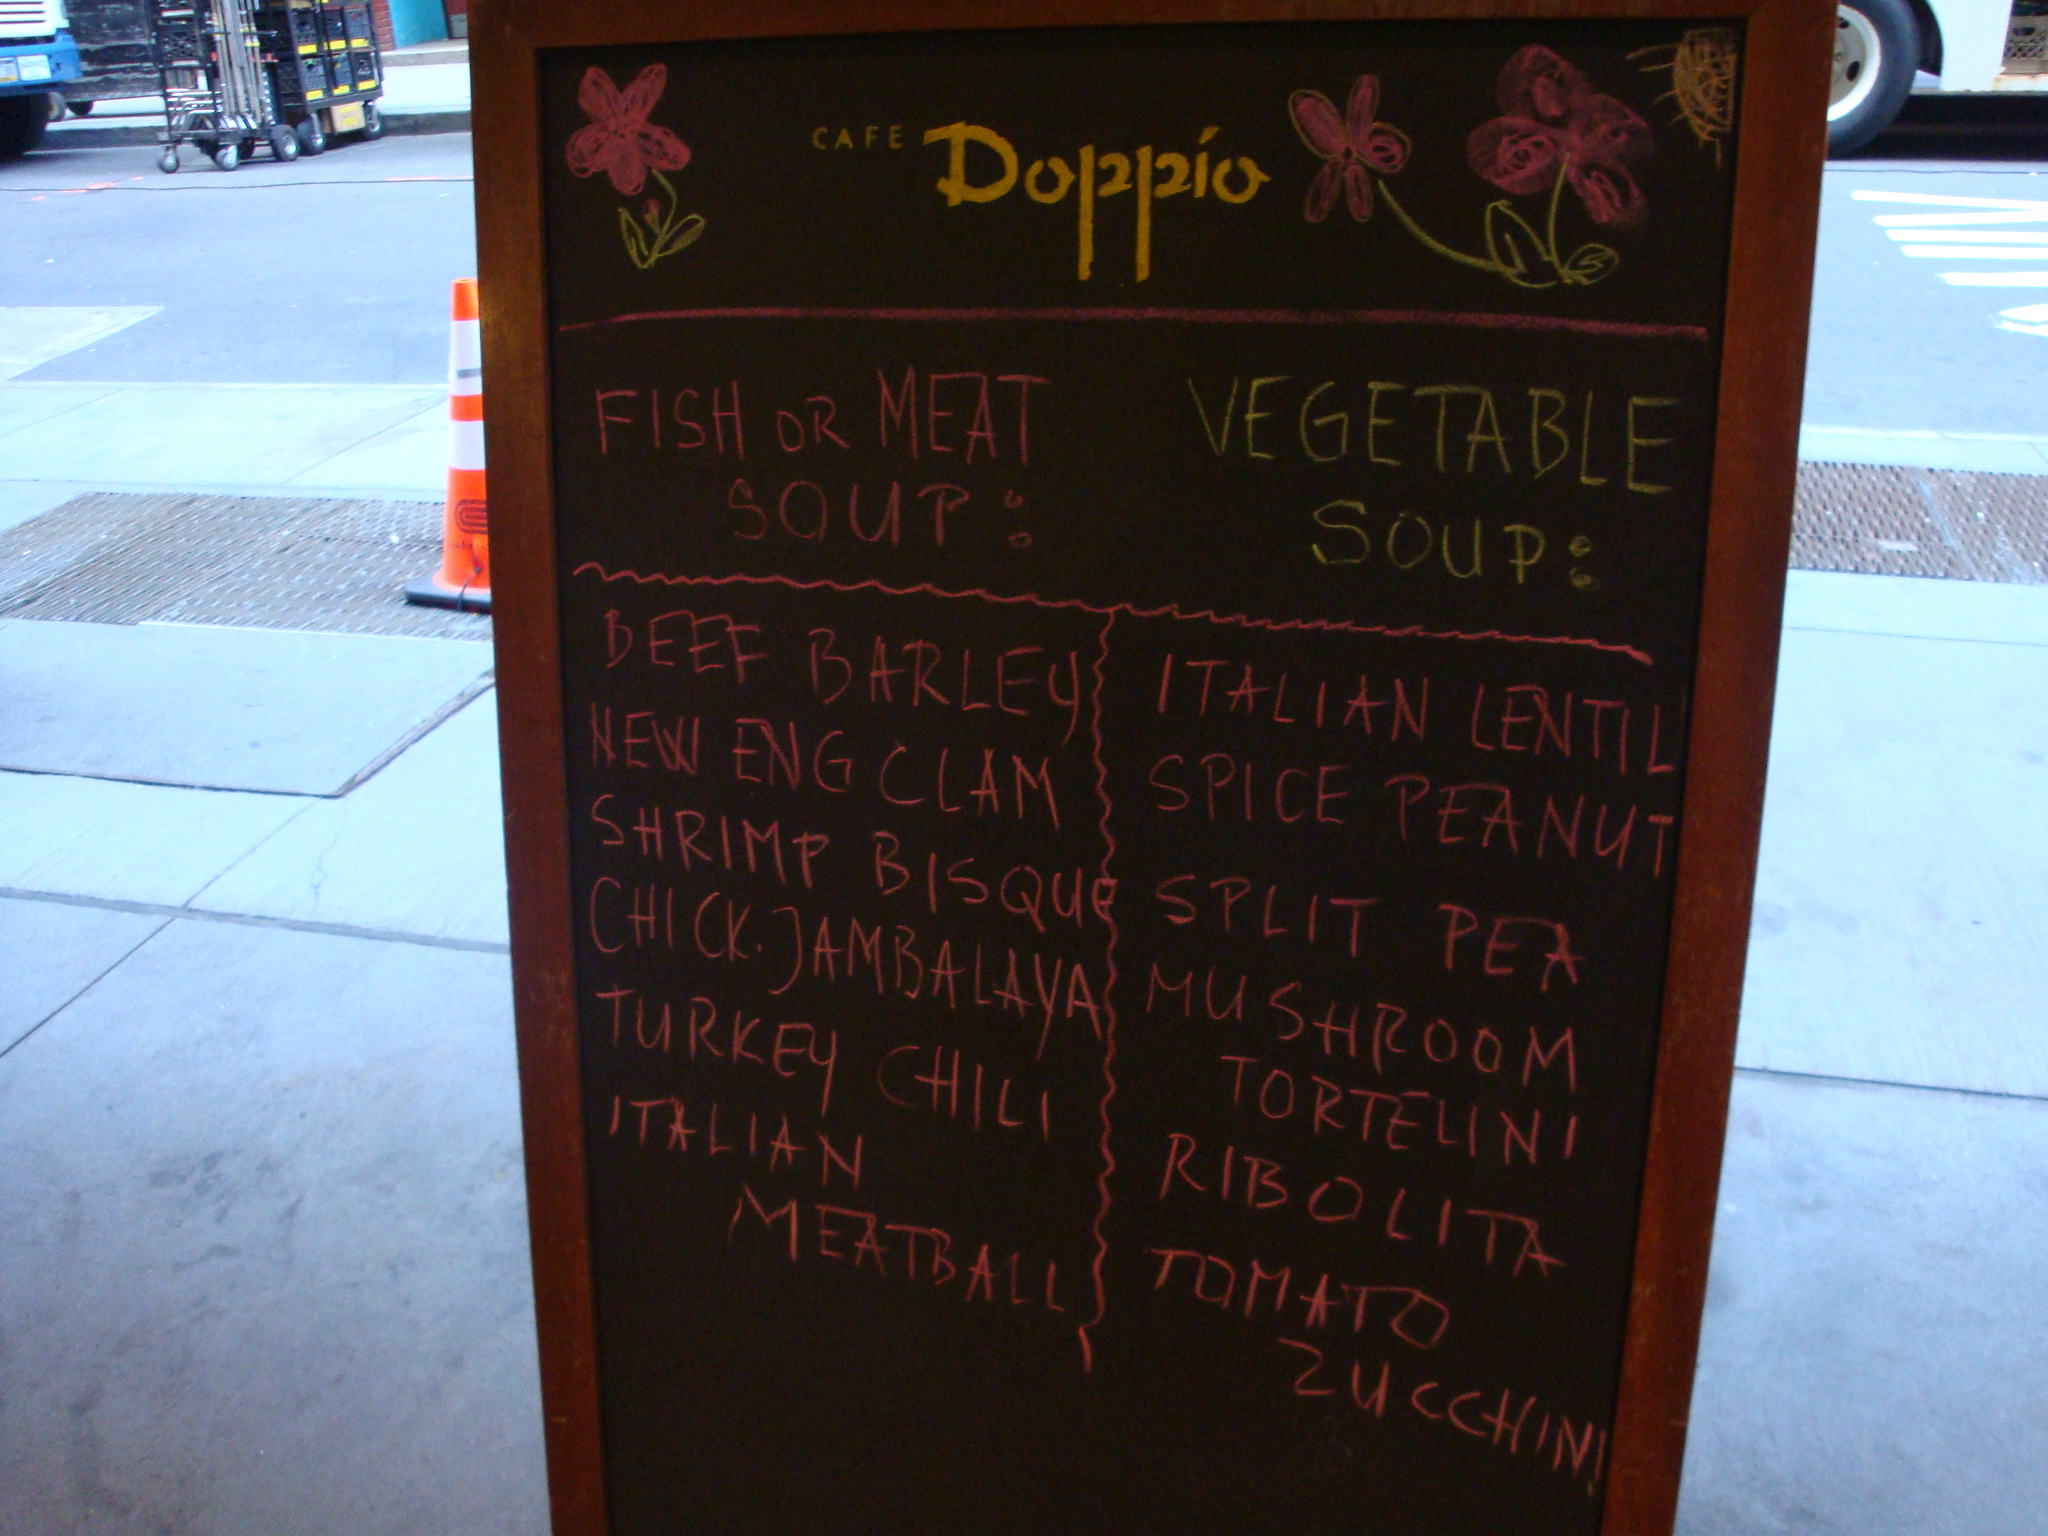 CAFE Doppio
FISH OR MEAT
SOUP:
VEGETABLE
SOUP:
BEEF BARLEY
NEW ENG CLAM
SHRIMP BISQUE
CHICK. JAMBALAYA
TURKEY CHILI
ITALIAN
MEATBALL
ITALIAN LENTIL
SPICE PEANUT
SPLIT PEA
MUSHROOM
TORTELINI
RIBOLITA
TOMATO
ZUCCHINI